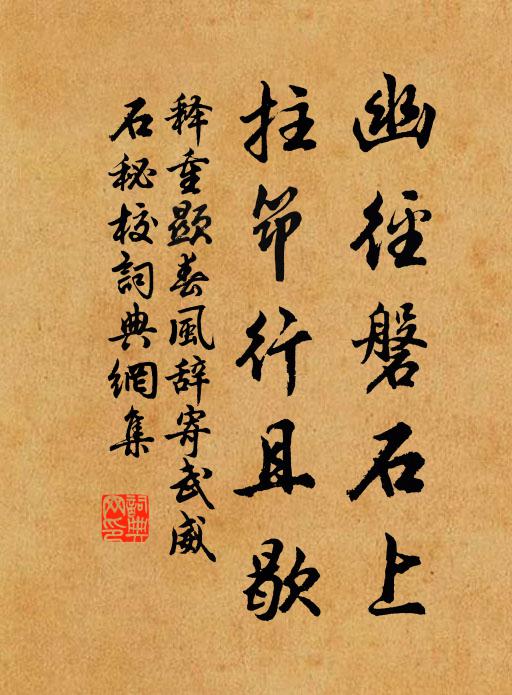 幽径磐石上
拄笻行且歇
释重顯春風辞寄武威
石秘校詞典網集
詞典網印